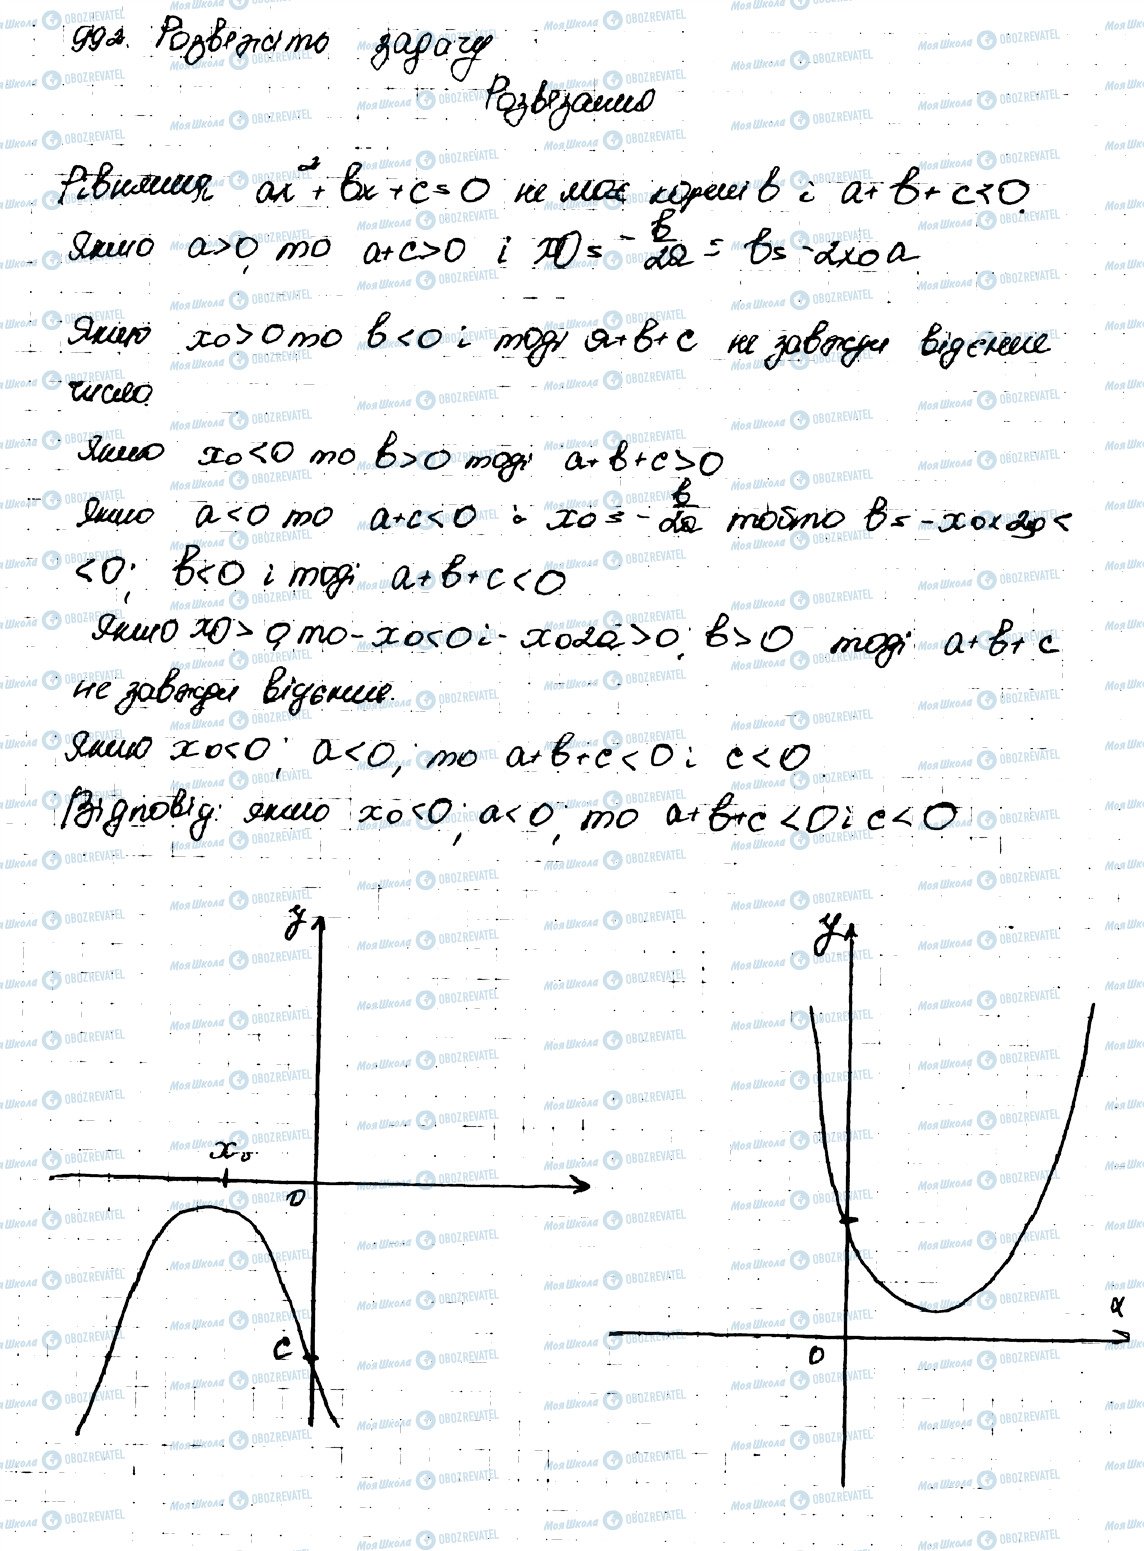 992. Розвяжіть задачу
Розвязання
Рівняння ax² + bx + c = 0 не має коренів і a + b + c < 0.
Якщо a > 0, то a+c > 0 і x0 = - b/2a = b = -2x0a.
Якщо x0 > 0 то b < 0 і тоді a+b+c не завжди відємне
число.
Якщо x0 < 0 то b > 0 тоді a+b+c > 0
Якщо a < 0 то a+c < 0 і x0 = - b/2a тобто b = -x0 × 2a <
< 0; b < 0 і тоді a+b+c < 0
Якщо x0 > 0, то -x0 < 0 і -x02a > 0; b > 0 тоді a+b+c
не завжди відємне.
Якщо x0 < 0; a < 0; то a+b+c < 0 і c < 0.
Відповідь: якщо x0 < 0; a < 0; то a+b+c < 0 і c < 0
y
y
x₀
0
c
x
0
МояШкола OBOZREVATEL